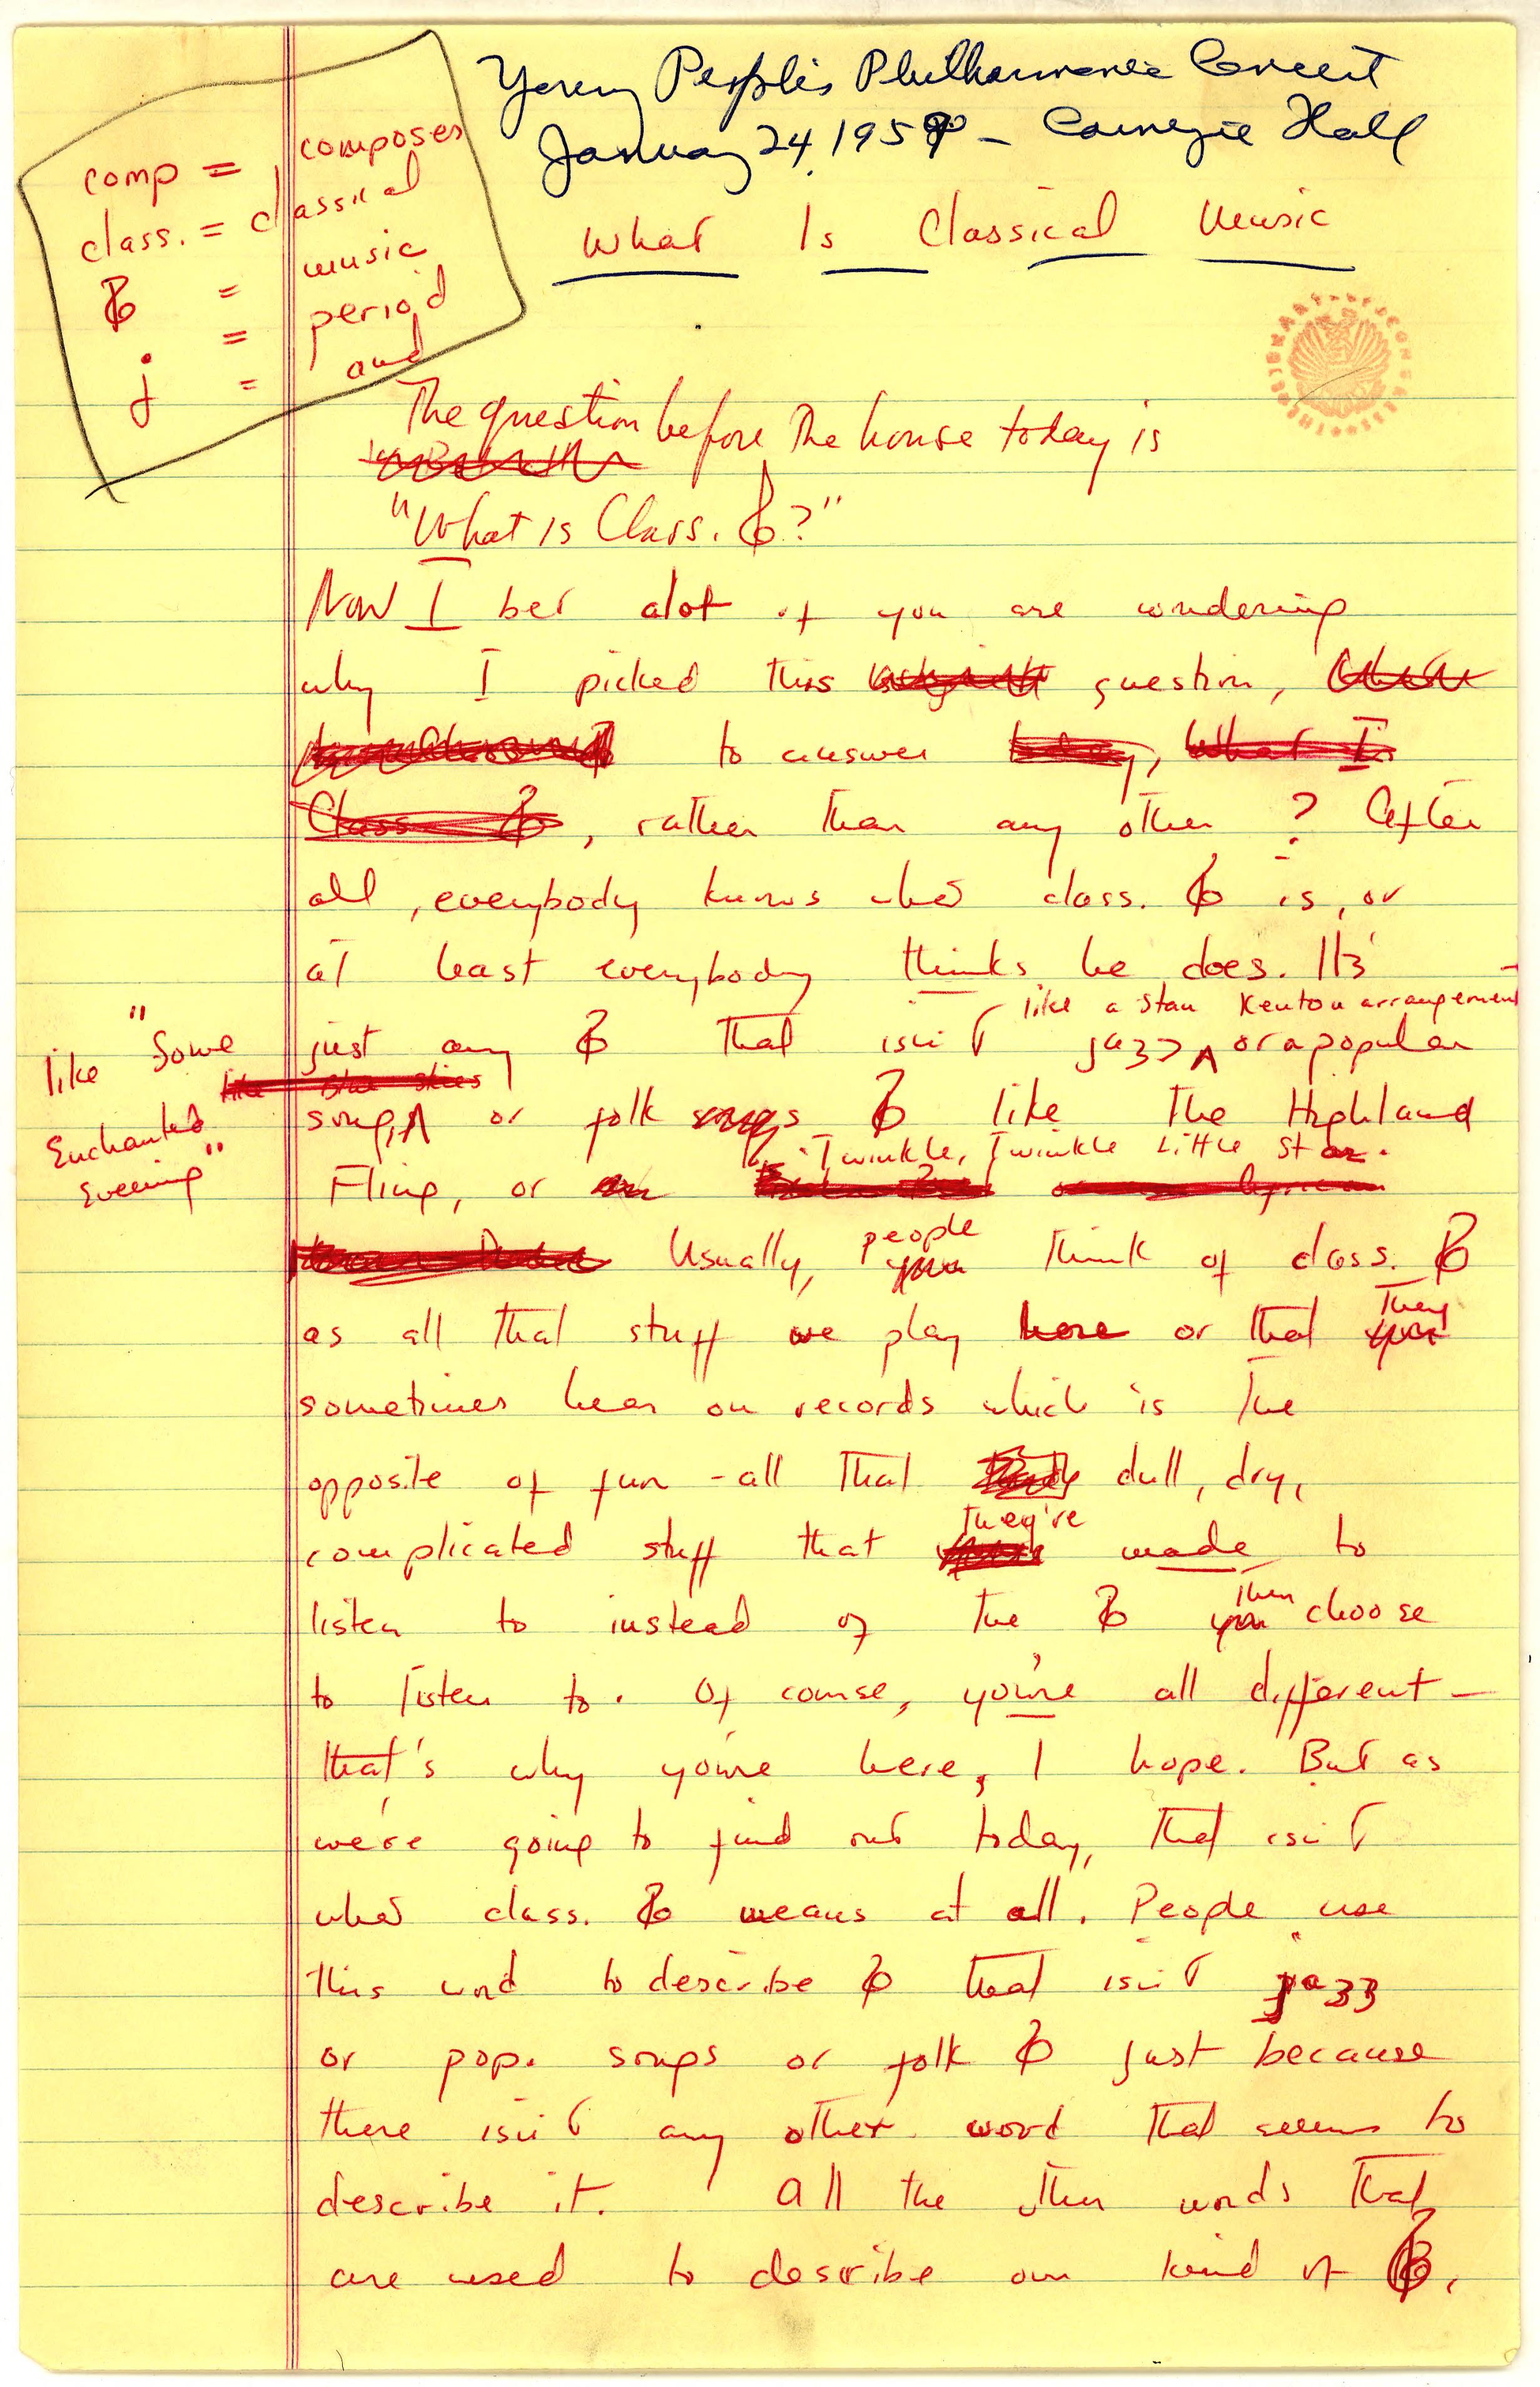 Young People's Philharmonic Concert
January 24, 1959 – Carnegie Hall
What Is Classical Music
comp = composer
class. = classical
𝄞 = music
. = period
j = and
The question before the house today is
"What is Class. 𝄞?"
Now I bet alot of you are wondering
why I picked this question,
to answer today, What Is
Class 𝄞, rather than any other? After
all, everybody knows what class. 𝄞 is, or
at least everybody thinks he does. It's
like a Stan Kenton arrangement
just any 𝄞 that isn't jazz ^ or a popular
like "Some
Enchanted
Evening"
like blue skies
song, ^ or folk songs 𝄞 like the Highland
Twinkle, Twinkle Little Star.
Fling, or
Usually, people you think of class. 𝄞
as all that stuff we play here or that they you
sometimes hear on records which is the
opposite of fun – all that dull, dry,
complicated stuff that they're made to
listen to instead of the 𝄞 they you choose
to listen to. Of course, you're all different –
that's why you're here, I hope. But as
we're going to find out today, that isn't
what class. 𝄞 means at all. People use
this word to describe 𝄞 that isn't jazz
or pop. songs or folk 𝄞 just because
there isn't any other word that seems to
describe it. All the other words that
are used to describe our kind of 𝄞,